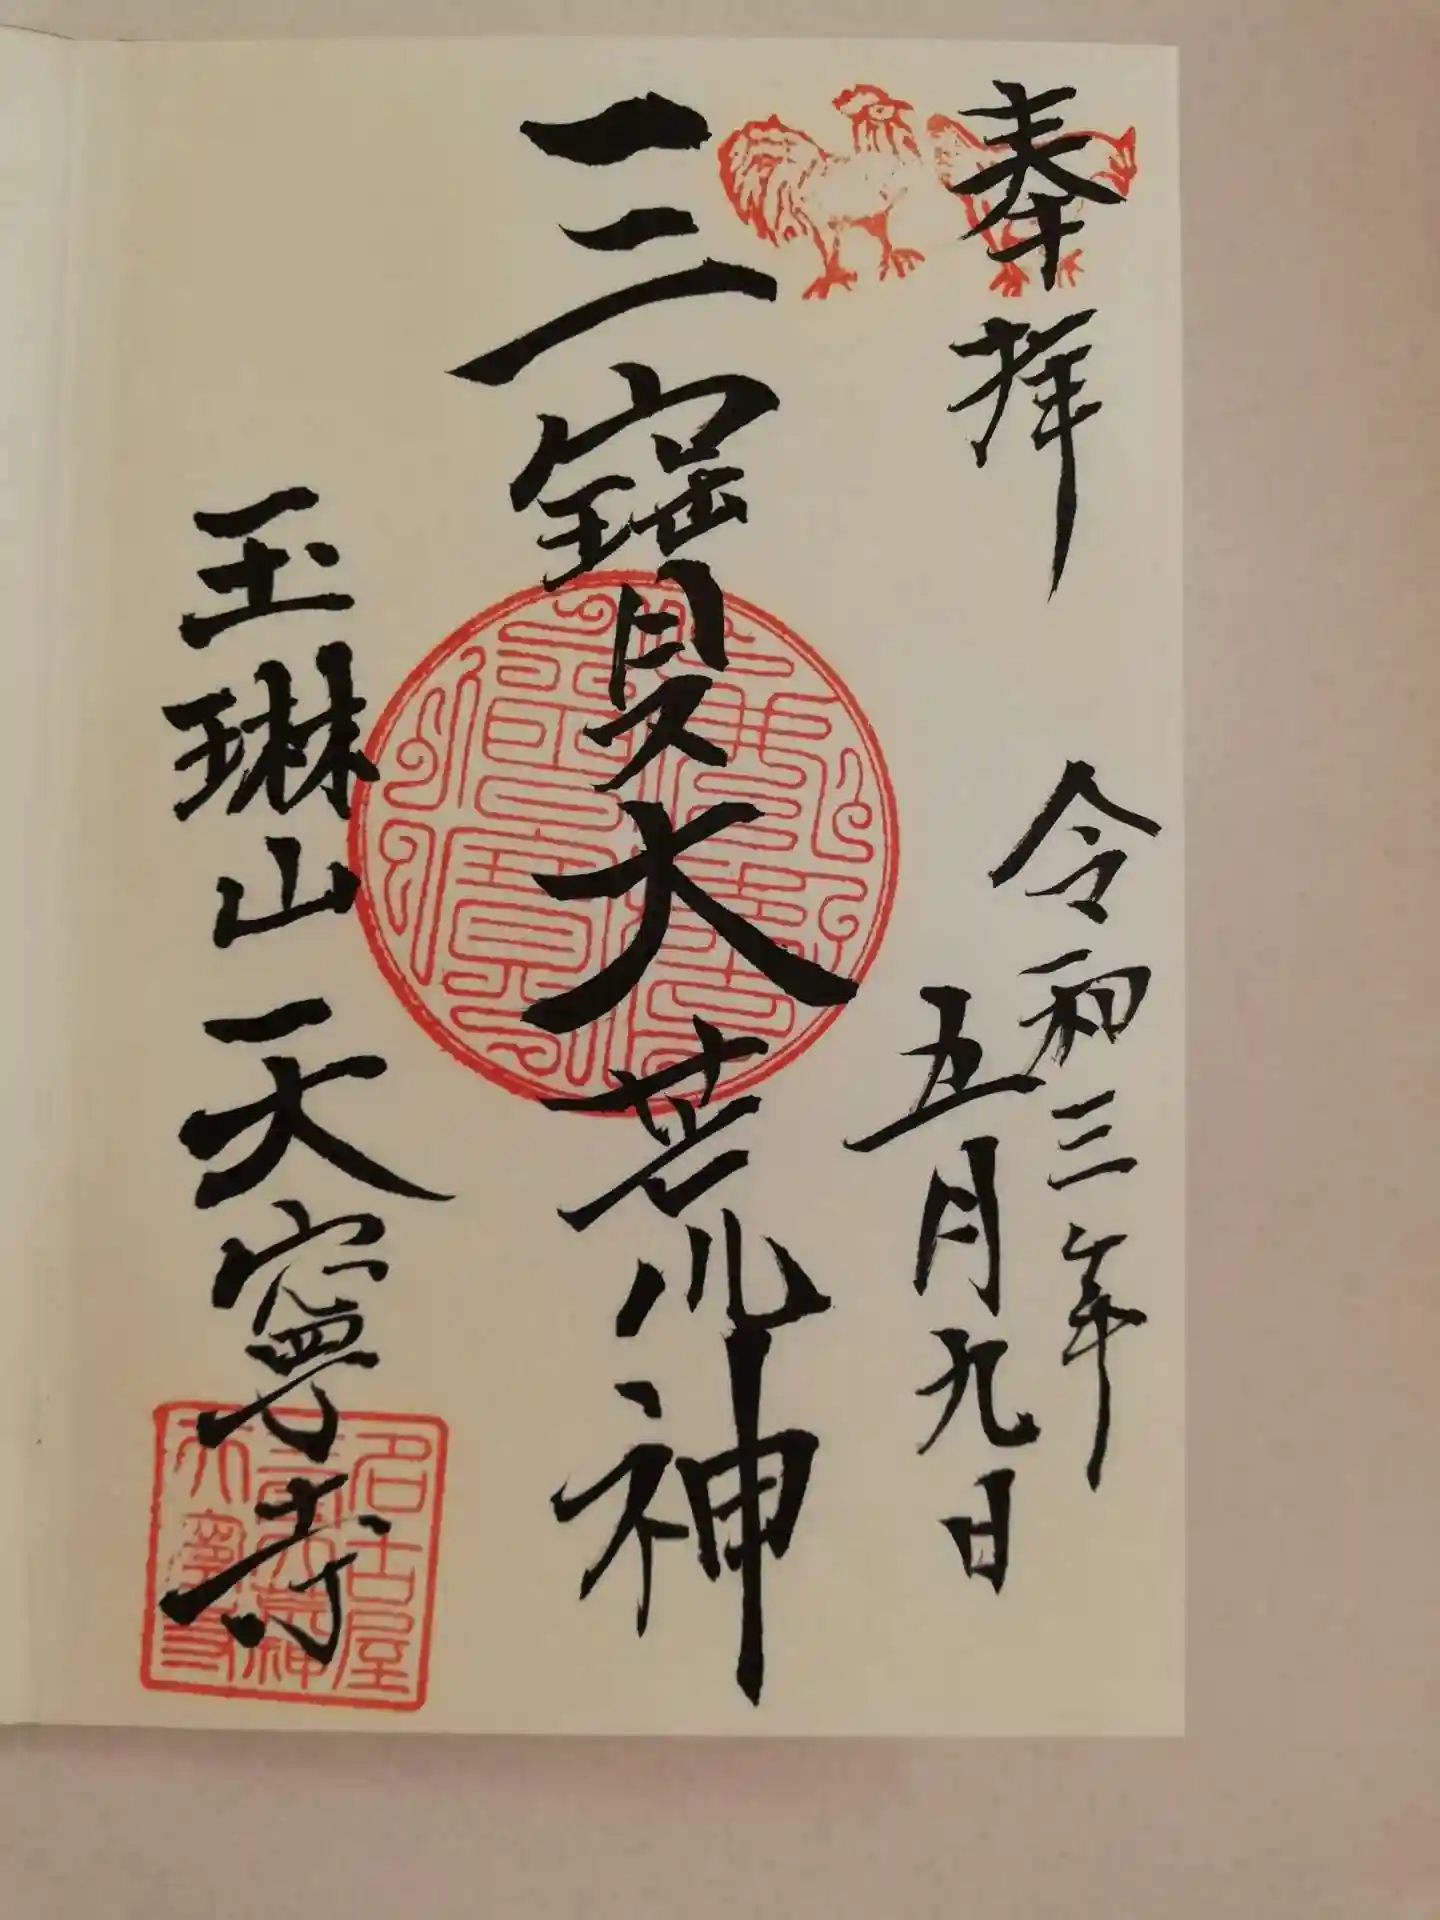 奉拝
令和三年
五月九日
三寳大荒神
玉琳山天寧寺
名古屋
三宝大荒神
天寧寺